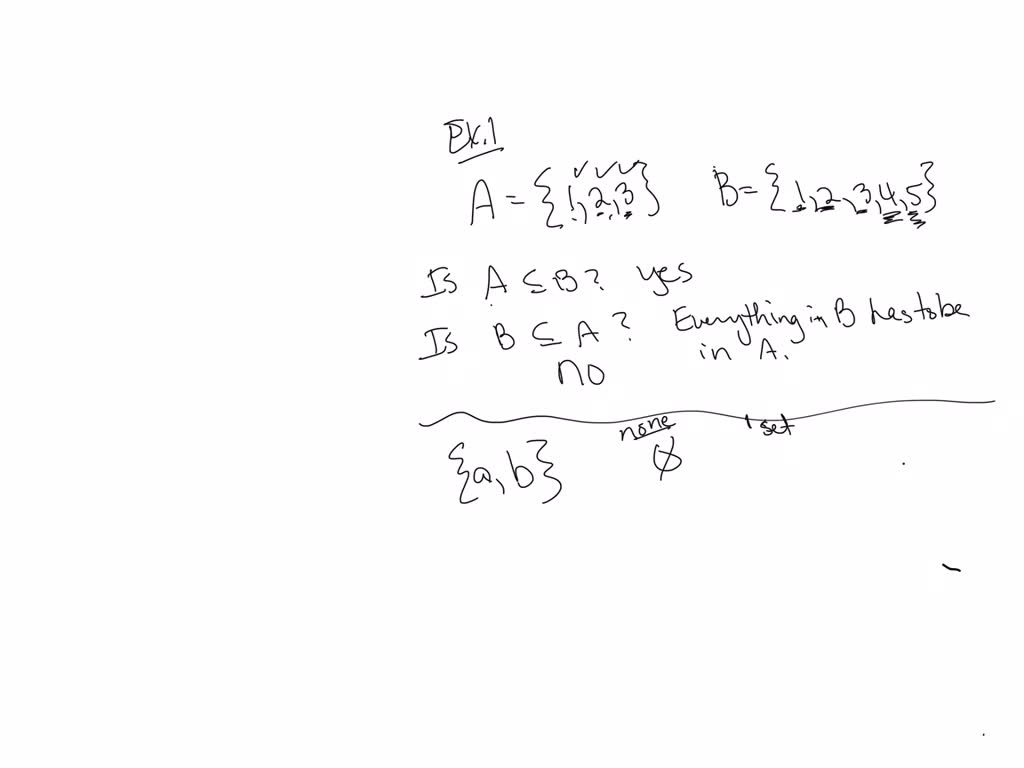 Ex.1
A = {1,2,3} B = {1,2,3,4,5}
Is A ⊆ B? yes
Is B ⊆ A? Everything in B has to be
in A.
no
none 1 set
{a,b} ∅